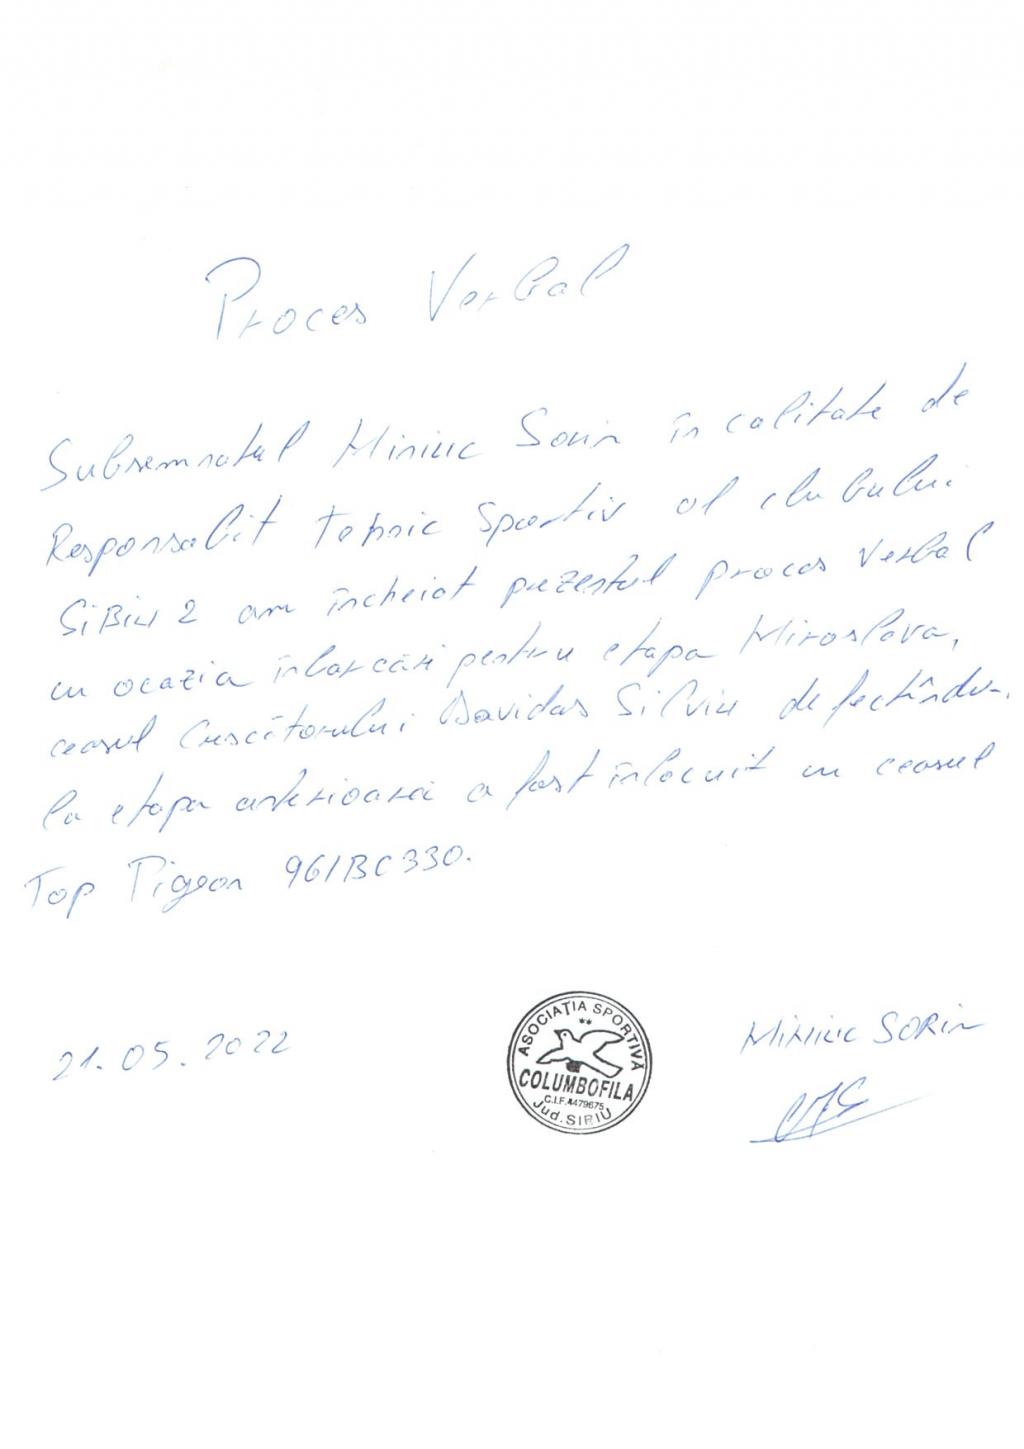 Proces Verbal
Subsemnatul Miniuc Sorin în calitate de
Responsabil Tehnic Sportiv al clubului
SiBiu 2 am încheiat prezentul proces Verbal
cu ocazia înbarcări pentru etapa Miroslava,
ceasul Crescătorului Davidas Silviu defectîndu-
la etapa anterioară a fost înlocuit cu ceasul
Top Pigeon 961BC330.
21.05.2022
ASOCIAȚIA SPORTIVĂ
COLUMBOFILA
C.I.F. 4479675
Jud. SIBIU
MiNiuc SORin